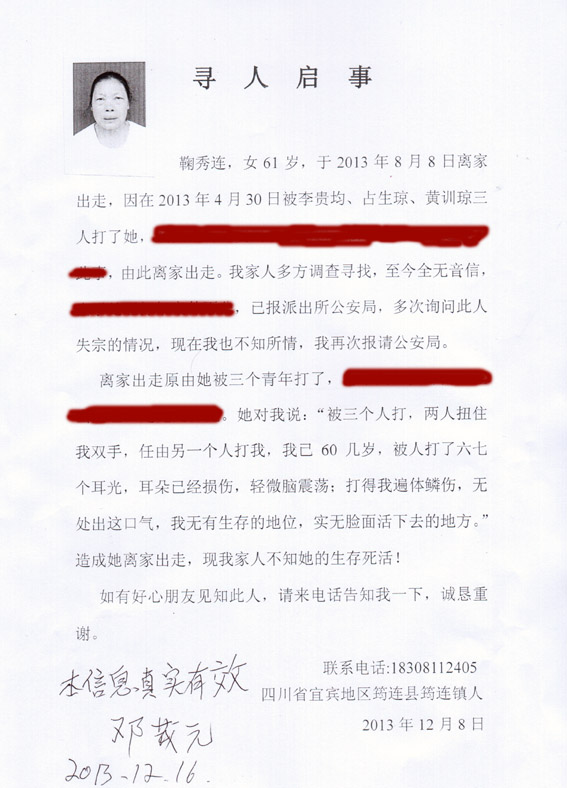 寻人启事
鞠秀连，女61岁，于2013年8月8日离家
出走，因在2013年4月30日被李贵均、占生琼、黄训琼三
人打了她，
，由此离家出走。我家人多方调查寻找，至今全无音信，
，已报派出所公安局，多次询问此人
失宗的情况，现在我也不知所情，我再次报请公安局。
离家出走原由她被三个青年打了，
。她对我说：“被三个人打，两人扭住
我双手，任由另一个人打我，我已60几岁，被人打了六七
个耳光，耳朵已经损伤，轻微脑震荡；打得我遍体鳞伤，无
处出这口气，我无有生存的地位，实无脸面活下去的地方。”
造成她离家出走，现我家人不知她的生存死活！
如有好心朋友见知此人，请来电话告知我一下，诚恳重
谢。
联系电话:18308112405
四川省宜宾地区筠连县筠连镇人
2013年12月8日
本信息真实有效
邓元
2013-12.16.